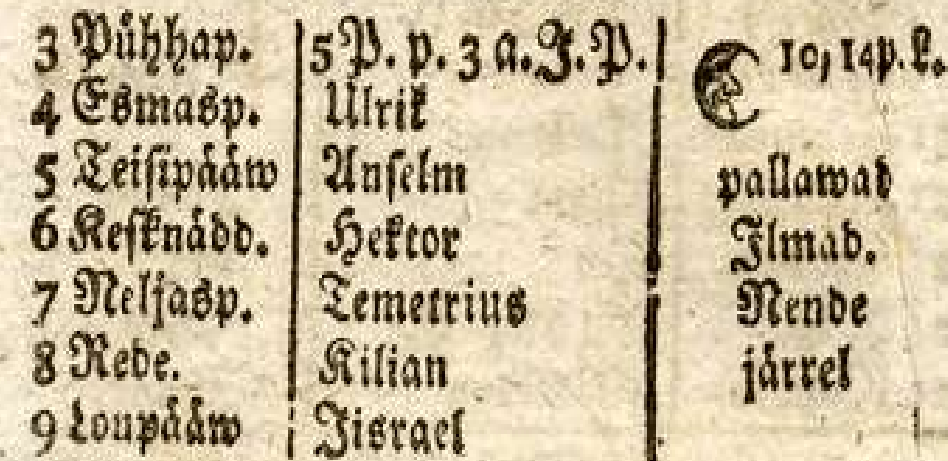 3 Pühhap. 5 P. p. 3 a. J. P. 10, 14 p. L.
4 Esmasp. Ulrik
5 Teisipääw Anselm pallawad
6 Keſknädd. Hektor Ilmad.
7 Neljasp. Temetrius Nende
8 Rede. Kilian järrel
9 Loupääw Jisrael